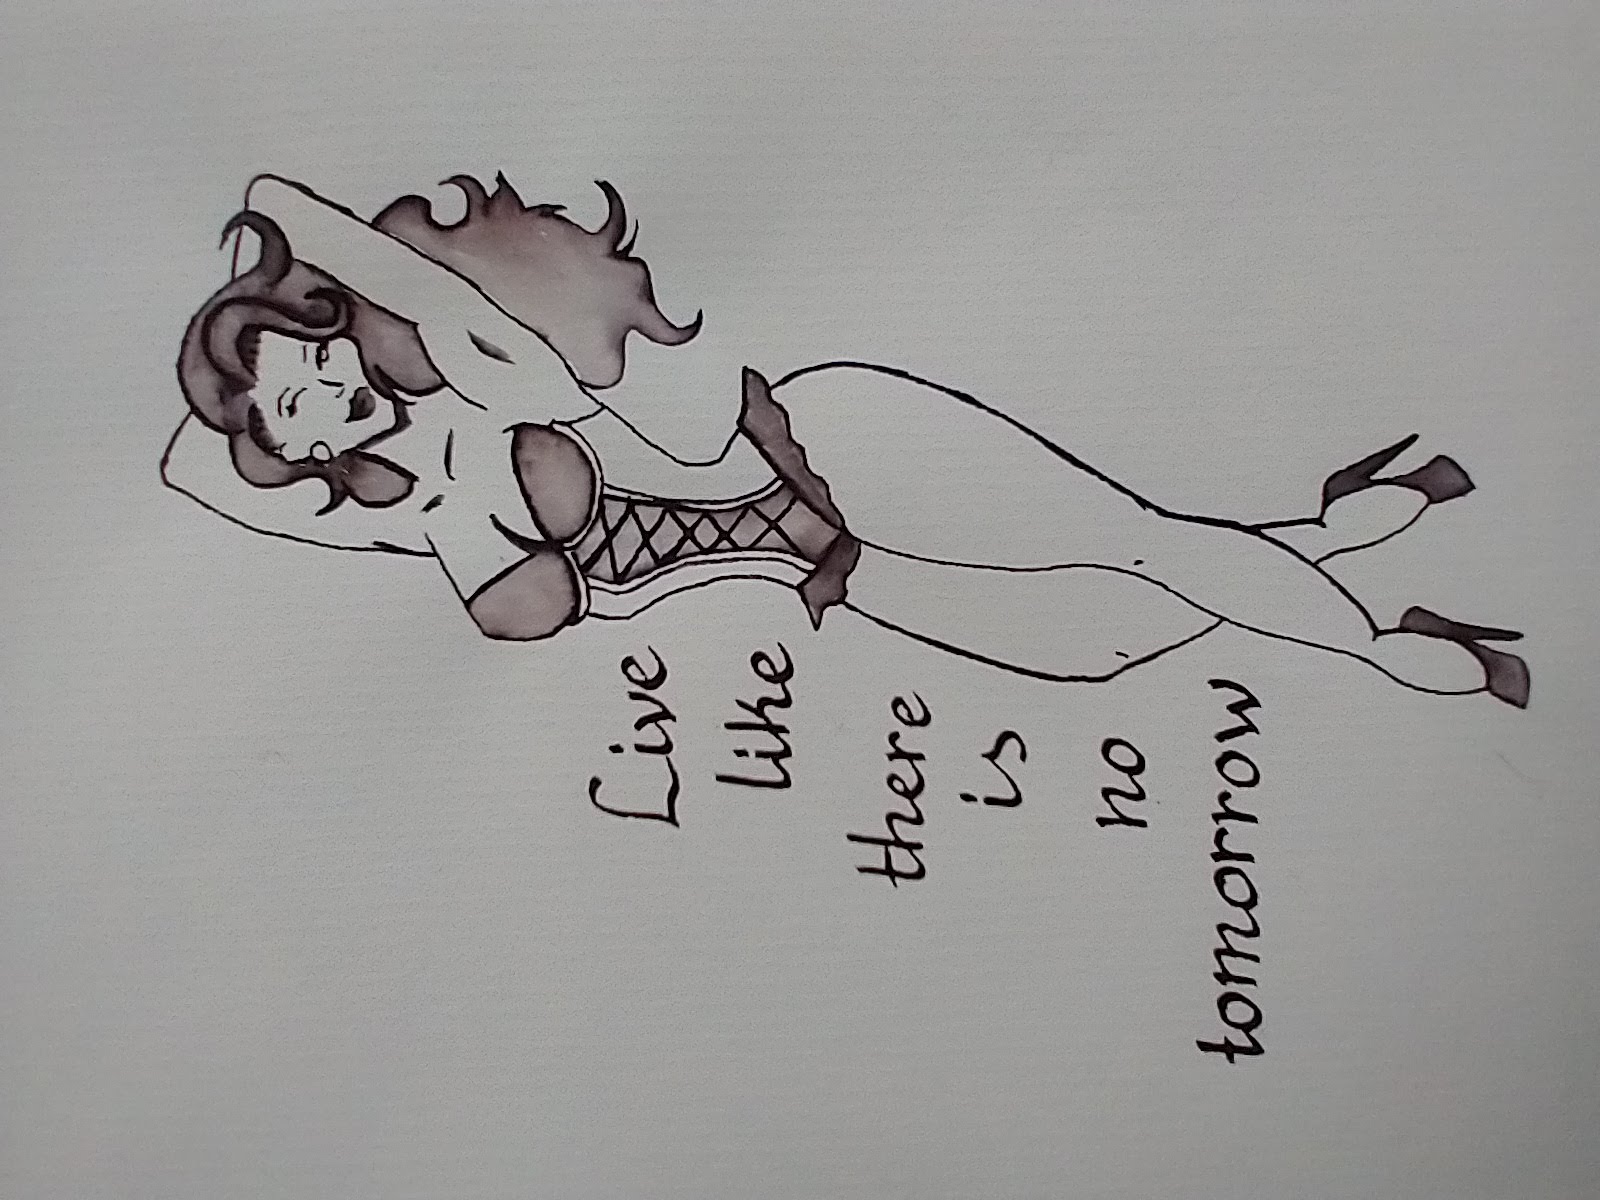 Live
like
there
is
no
tomorrow